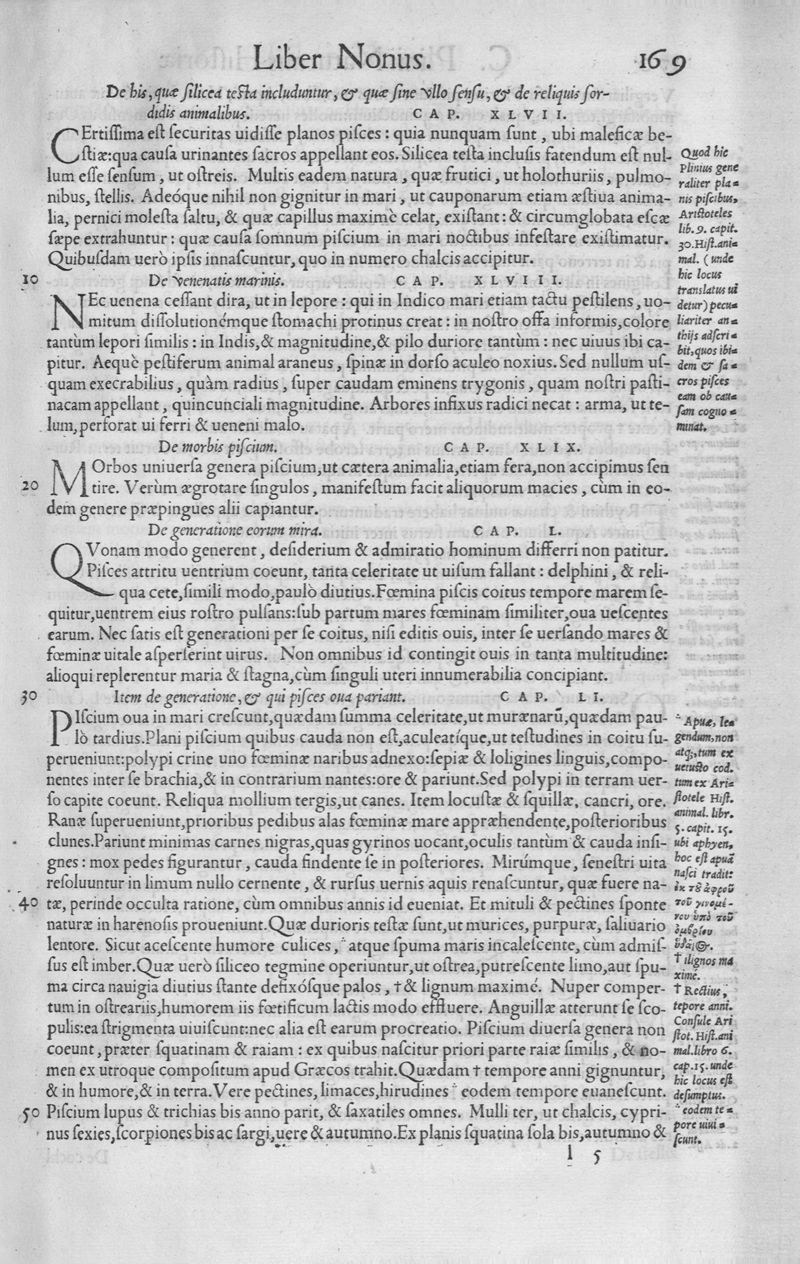 Liber Nonus. 169
De his, quæ ſilicea teſta includuntur, & quæ ſine vllo ſenſu, & de reliquis ſor-
didis animalibus. CAP. XLVII.
CErtiſſima eſt ſecuritas uidiſſe planos piſces : quia nunquam ſunt, ubi maleficæ be-
ſtiæ:qua cauſa urinantes ſacros appellant eos. Silicea teſta incluſis fatendum eſt nul-
lum eſſe ſenſum, ut oſtreis. Multis eadem natura, quæ frutici, ut holothuriis, pulmo-
nibus, ſtellis. Adeóque nihil non gignitur in mari, ut cauponarum etiam æſtiua anima-
lia, pernici moleſta ſaltu, & quæ capillus maximè celat, exiſtant: & circumglobata eſcæ
ſæpe extrahuntur : quæ cauſa ſomnum piſcium in mari noctibus infeſtare exiſtimatur.
Quibuſdam uerò ipſis innaſcuntur, quo in numero chalcis accipitur.
10 De venenatis marinis. CAP. XLVIII.
NEc uenena ceſſant dira, ut in lepore : qui in Indico mari etiam tactu peſtilens, uo-
mitum diſſolutionémque ſtomachi protinus creat : in noſtro offa informis, colore
tantùm lepori ſimilis : in Indis, & magnitudine, & pilo duriore tantùm : nec uiuus ibi ca-
pitur. Aequè peſtiferum animal araneus, ſpinæ in dorſo aculeo noxius. Sed nullum uſ-
quam execrabilius, quàm radius, ſuper caudam eminens trygonis, quam noſtri paſti-
nacam appellant, quincunciali magnitudine. Arbores infixus radici necat : arma, ut te-
lum, perforat ui ferri & ueneni malo.
De morbis piſcium. CAP. XLIX.
MOrbos uniuerſa genera piſcium, ut cætera animalia, etiam fera, non accipimus ſen
20 tire. Verùm ægrotare ſingulos, manifeſtum facit aliquorum macies, cùm in eo-
dem genere præpingues alii capiantur.
De generatione eorum mira. CAP. L.
QVonam modo generent, deſiderium & admiratio hominum differri non patitur.
Piſces attritu uentrium coeunt, tanta celeritate ut uiſum fallant : delphini, & reli-
qua cete, ſimili modo, paulò diutius. Fœmina piſcis coitus tempore marem ſe-
quitur, uentrem eius roſtro pulſans: ſub partum mares fœminam ſimiliter, oua ueſcentes
earum. Nec ſatis eſt generationi per ſe coitus, niſi editis ouis, inter ſe uerſando mares &
fœminæ uitale aſperſerint uirus. Non omnibus id contingit ouis in tanta multitudine:
alioqui replerentur maria & ſtagna, cùm ſinguli uteri innumerabilia concipiant.
30 Item de generatione, & qui piſces oua pariant. CAP. LI.
PIſcium oua in mari creſcunt, quædam ſumma celeritate, ut murænarū, quædam pau-
lò tardius. Plani piſcium quibus cauda non eſt, aculeatíque, ut teſtudines in coitu ſu-
perueniunt: polypi crine uno fœminæ naribus adnexo: ſepiæ & loligines linguis, compo-
nentes inter ſe brachia, & in contrarium nantes: ore & pariunt. Sed polypi in terram uer-
ſo capite coeunt. Reliqua mollium tergis, ut canes. Item locuſtæ & ſquillæ, cancri, ore.
Ranæ ſuperueniunt, prioribus pedibus alas fœminæ mare appræhendente, poſterioribus
clunes. Pariunt minimas carnes nigras, quas gyrinos uocant, oculis tantùm & cauda inſi-
gnes : mox pedes figurantur, cauda findente ſe in poſteriores. Mirúmque, ſeneſtri uita
reſoluuntur in limum nullo cernente, & rurſus uernis aquis renaſcuntur, quæ fuere na-
40 tæ, perinde occulta ratione, cùm omnibus annis id eueniat. Et mituli & pectines ſponte
naturæ in harenoſis proueniunt. Quæ durioris teſtæ ſunt, ut murices, purpuræ, ſaliuario
lentore. Sicut aceſcente humore culices, * atque ſpuma maris incaleſcente, cùm admiſ-
ſus eſt imber. Quæ uerò ſiliceo tegmine operiuntur, ut oſtrea, putreſcente limo, aut ſpu-
ma circa nauigia diutius ſtante defixóſque palos, † & lignum maximé. Nuper comper-
tum in oſtreariis, humorem iis fœtificum lactis modo effluere. Anguillæ atterunt ſe ſco-
pulis: ea ſtrigmenta uiuiſcunt: nec alia eſt earum procreatio. Piſcium diuerſa genera non
coeunt, præter ſquatinam & raiam : ex quibus naſcitur priori parte raiæ ſimilis, & no-
men ex utroque compoſitum apud Græcos trahit. Quædam † tempore anni gignuntur,
& in humore, & in terra. Vere pectines, limaces, hirudines * eodem tempore euaneſcunt.
50 Piſcium lupus & trichias bis anno parit, & ſaxatiles omnes. Mulli ter, ut chalcis, cypri-
nus ſexies, ſcorpiones bis ac ſargi, uere & autumno. Ex planis ſquatina ſola bis, autumno &
l 5
Quod hic
Plinius gene
raliter pla-
nis piſcibus,
Ariſtoteles
lib. 9. capit.
30. Hiſt. ani-
mal. (unde
hic locus
translatus ui
detur) pecu-
liariter an-
thijs adſcri-
bit, quos ibi-
dem & ſa-
cros piſces
eam ob cau-
ſam cogno-
minat.
* Apuæ, le-
gendum, non
atq;, tum ex
uetuſto cod.
tum ex Ari-
ſtotele Hiſt.
animal. libr.
5. capit. 15.
ubi aphyen,
hoc eſt apuā
naſci tradit:
ἐκ τοῦ ἀφροῦ
τοῦ γινομέ-
νου ὑπὸ τοῦ
ὀμβρίου
ὕδατος.
† ilignos ma
ximé.
† Rectius,
tepore anni.
Conſule Ari
ſtot. Hiſt. ani
mal. libro 6.
cap. 15. unde
hic locus eſt
deſumptus.
* eodem te-
pore uiui-
ſcunt.